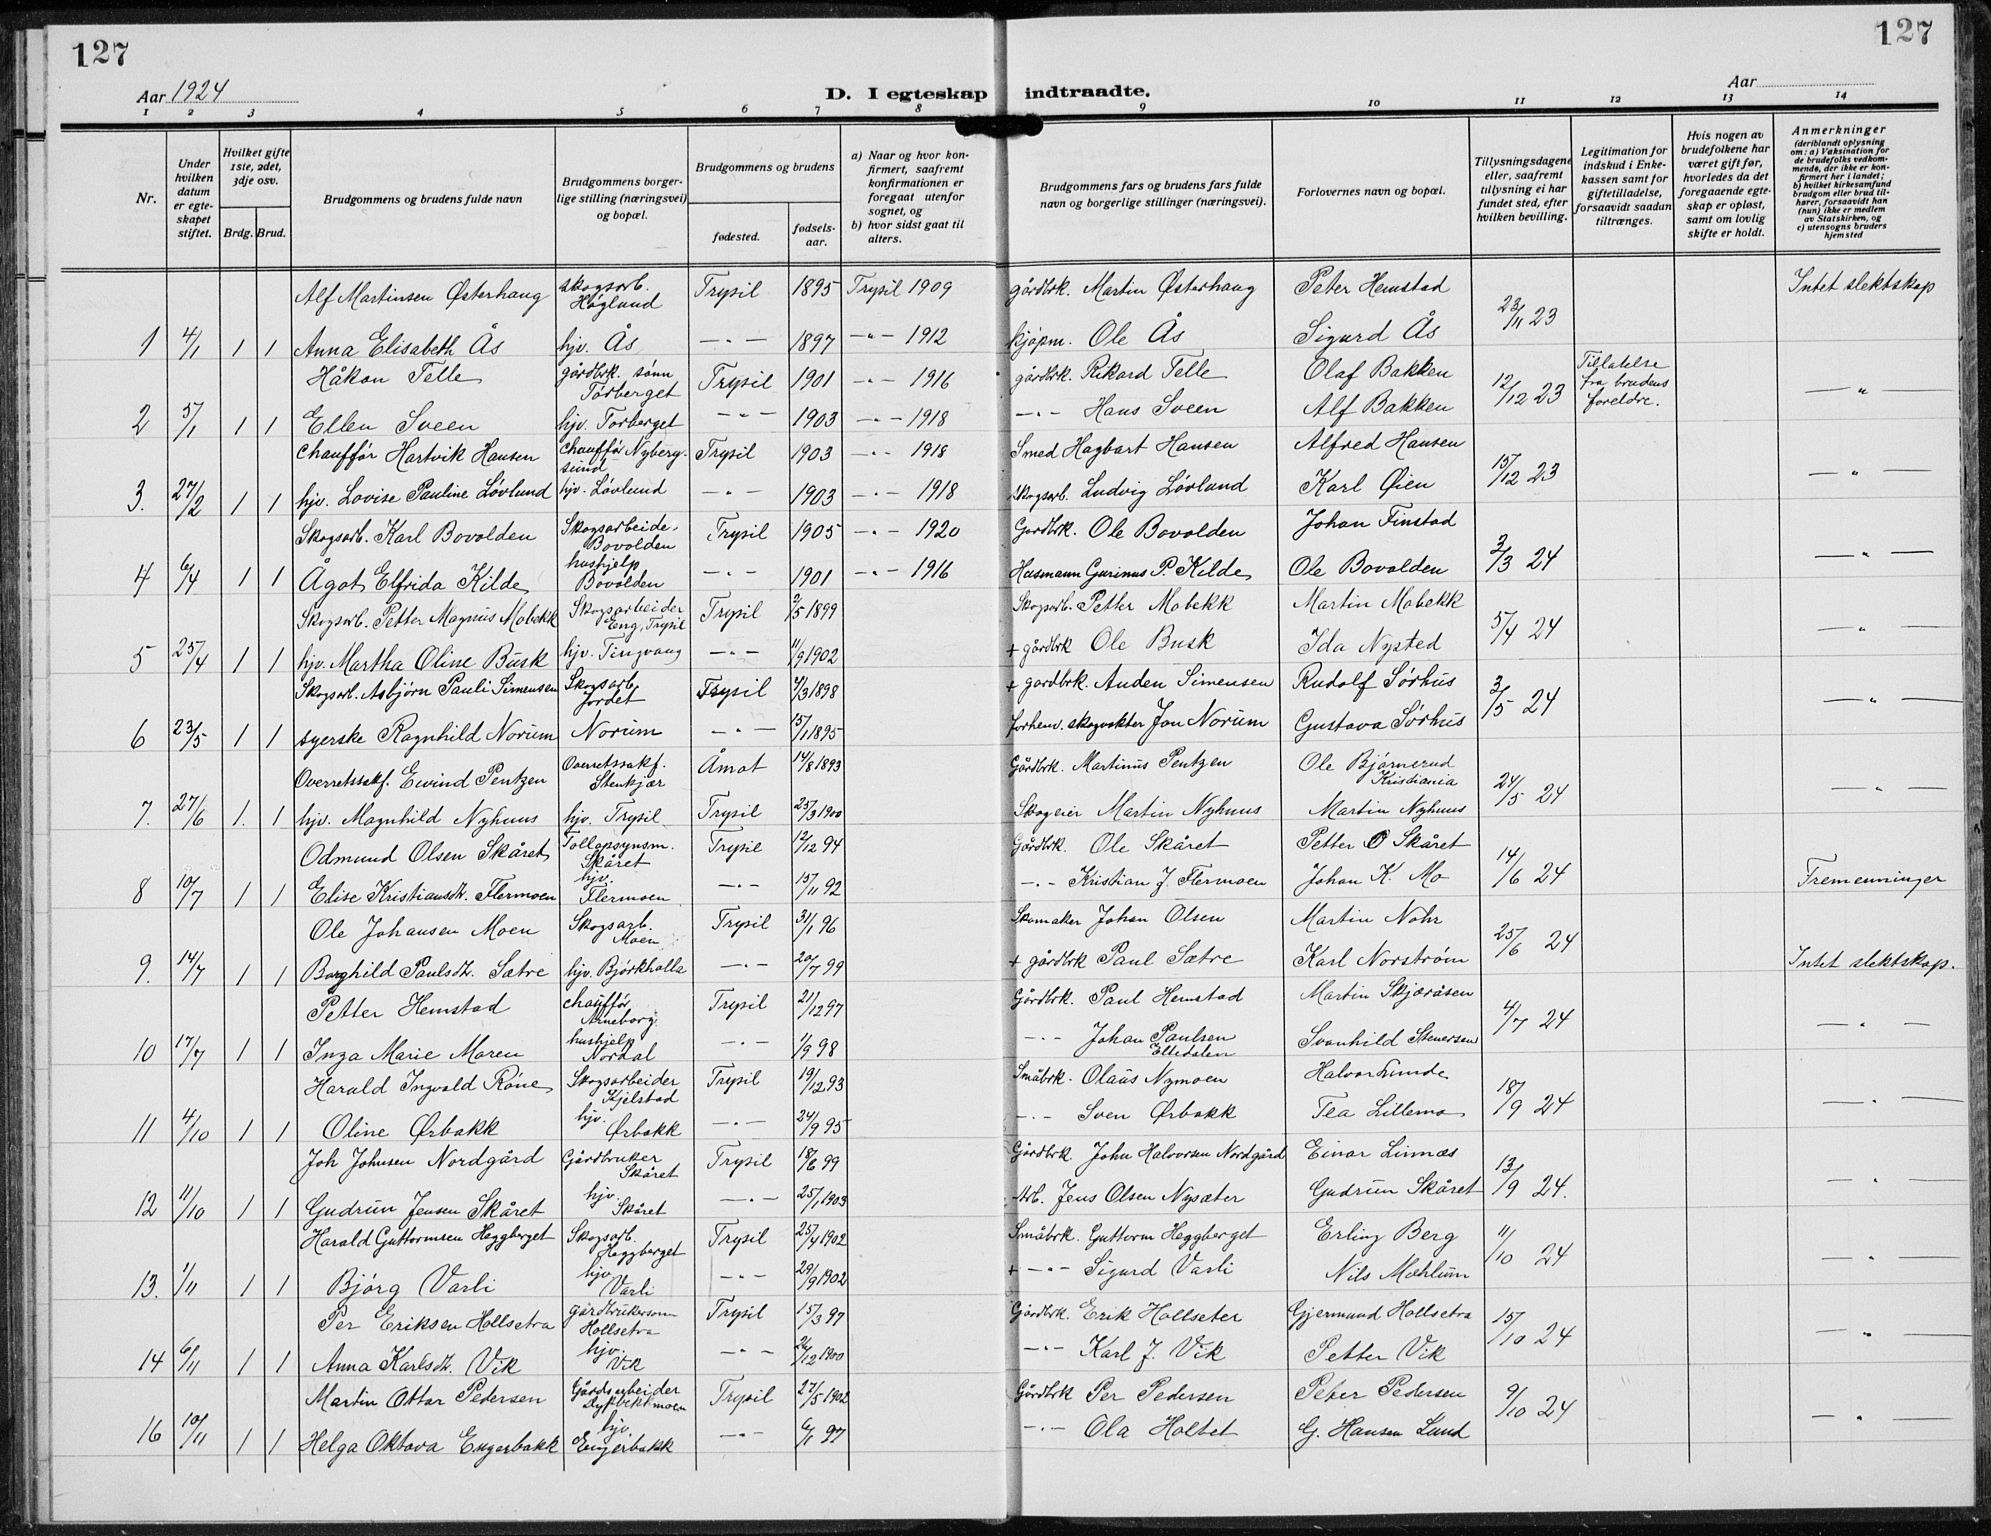 127
127
Aar 1924
D. I egteskap indtraadte.
Aar
1 2 3 4 5 6 7 8 9 10 11 12 13 14
Nr.
Under hvilken datum er egteskapet stiftet.
Hvilket gifte 1ste, 2det, 3dje osv.
Brdg. Brud.
Brudgommens og brudens fulde navn
Brudgommens borgerlige stilling (næringsvei) og bopæl.
Brudgommens og brudens
fødested.
fødselsaar.
a) Naar og hvor konfirmert, saafremt konfirmationen er foregaat utenfor sognet, og
b) hvor sidst gaat til alters.
Brudgommens fars og brudens fars fulde navn og borgerlige stillinger (næringsvei).
Forlovernes navn og bopæl.
Tillysningsdagene eller, saafremt tillysning ei har fundet sted, efter hvilken bevilling.
Legitimation for indskud i Enkekassen samt for giftetilladelse, forsaavidt saadan tiltrænges.
Hvis nogen av brudefolkene har været gift før, hvorledes da det foregaaende egteskap er opløst, samt om lovlig skifte er holdt.
Anmerkninger
(deriblandt oplysning om: a) Vaksination for de brudefolks vedkommende, der ikke er konfirmert her i landet;
b) hvilket kirkesamfund brudgom eller brud tilhører, forsaavidt han (hun) ikke er medlem av Statskirken, og
c) utensogns bruders hjemsted
Alf Martinsen Østerhaug skogsarb. Høglund Trysil 1895 Trysil 1909 gårdbrk. Martin Østerhaug Peter Hemstad 23/11 23 Intet slektskap
1 4/1 1 1 Anna Elisabeth Ås hjv. Ås — " — 1897 — " — 1912 kjøpm. Ole Ås Sigurd Ås
Håkon Telle gårdbrk. sønn Torberget Trysil 1901 — " — 1916 gårdbrk. Rikard Telle Olaf Bakken 12/12 23 Tillatelse fra brudens foreldre. — " —
2 5/1 1 1 Ellen Sveen hjv. Torberget — " — 1903 — " — 1918 — " — Hans Sveen Alf Bakken
Chauffør Hartvik Hansen Chauffør Nybergsund Trysil 1903 — " — 1918 Smed Hagbart Hansen Alfred Hansen 15/12 23 — " —
3. 27/2 1 1 hjv. Lovise Pauline Løvlund hjv. Løvlund — " — 1903 — " — 1918 skogsarb. Ludvig Løvlund Karl Øien
Skogsarb. Karl Bovolden Skogsarbeide. Bovolden Trysil 1905 — " — 1920 Gardbrk. Ole Bovolden Johan Finstad 2/3 24 — " —
4 6/4 1 1 Ågot Elfrida Kilde hushjelp Bovolden — " — 1901 — " — 1916 Husmann Gurinus P. Kilde Ole Bovolden
Skogsarb. Petter Magnus Mobekk Skogsarbeider Eng, Trysil Trysil 2/5 1899 Skogsarb. Petter Mobekk Martin Mobekk 5/4 24 — " —
5 25/4 1 1 hjv. Martha Oline Busk hjv. Tingvang — " — 11/9 1902 + gårdbrk Ole Busk Ida Nysted
Skogsarb. Asbjørn Pauli Simensen Skogsarb. Jordet Trysil 4/3 1898 + gardbrk. Auden Simensen Rudolf Sørhus 3/5 24 — " —
6 23/5 1 1 syerske Ragnhild Norum Norum — " — 15/1 1895 forhenv. skogvokter Jon Norum Gustava Sørhus
Overretssakf. Eivind Pentzen Overretssakf. Stenkjær Åmot 14/8 1893 Gårdbrk. Martinus Pentzen Ole Bjørnerud Kristiania 24/5 24 — " —
7. 27/6 1. 1 hjv. Magnhild Nyhuus hjv. Trysil Trysil 25/3 1900 Skogeier Martin Nyhuus Martin Nyhuus
Odmund Olsen Skåret Tollopsynsm. Skåret Trysil 12/12 94 Gårdbrk. Ole Skåret Petter O Skåret 14/6 24 Tremenninger
8 10/7 1 1 Elise Kristiansdt. Flermoen hjv. Flermoen — " — 15/11 92 — " — Kristian J. Flermoen Johan K. Mo
Ole Johansen Moen Skogsarb. Moen Trysil 31/1 96 Skomaker Johan Olsen Martin Nohr 25/6 24 Intet slektskap.
9. 14/7 1 1 Borghild Paulsdt. Sætre hjv. Bjørkhalla — " — 20/7 99 + gårdbrk Paul Sætre Karl Norstrøm
Petter Hemstad chauffør Arneborg Trysil 21/12 97 Gårdbrk. Paul Hemstad Martin Skjæråsen 4/7 24 — " —
10 17/7 1 1 Inga Marie Moren hushjelp Nordal — " — 1/9 98 — " — Johan Paulsen Eltdalen Svanhild Stenersen
Harald Ingvald Röne Skogsarbeider Kjelstad Trysil 19/12 93 Småbrk. Olaus Nymoen Halvor Lunde 18/9 24 — " —
11 4/10 1 1 Oline Ørbakk hjv. Ørbakk — " — 24/9 95 — " — Sven Ørbakk Tea Lillemo
Joh Johnsen Nordgård Gårdbruker Skåret Trysil 18/6 99 Gårdbrk. John Halvorsen Nordgård Einar Linnæs 13/9 24. — " —
12 11/10 1 1 Gudrun Jensen Skåret hjv. Skåret — " — 25/1 1903 Arb. Jens Olsen Nysæter Gudrun Skåret
Harald Guttormsen Heggberget Skogsarb. Heggberget Trysil 25/4 1902 Småbrk. Guttorm Heggberget Erling Berg 11/10 24 — " —
13. 1/11 1 1 Bjørg Varli hjv Varli — " — 29/9 1902 + — " — Sigurd Varli Nils Mæhlum
Per Eriksen Hollsetra gårdbrukersønn Hollsetra Trysil 15/3 97 Gårdbrk. Erik Hollseter Gjermund Hollsetra 15/10 24 — " —
14 6/11 1 1 Anna Karlsdt. Vik hjv. Vik — " — 26/12 1900 — " — Karl J. Vik Petter Vik
Martin Ottar Pedersen Gårdsarbeider Trysil 27/5 1902 Gårdbrk Per Pedersen Peter Pedersen 9/10 24 — " —
16 10/11 1 1 Helga Oktava Engerbakk hjv Engerbakk — " — 6/1 97 — " — Ola Holtet G. Hansen Lund